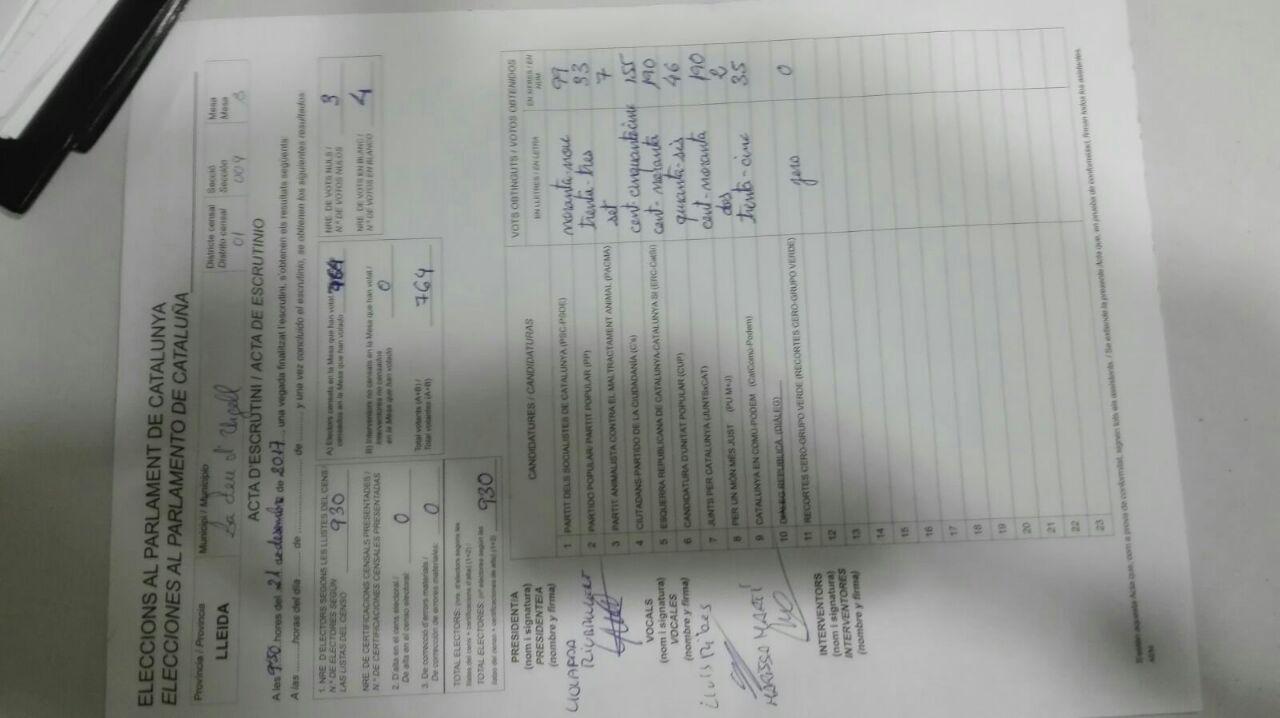 ELECCIONS AL PARLAMENT DE CATALUNYA
ELECCIONES AL PARLAMENTO DE CATALUÑA
Província / Provincia
Municipi / Municipio
Districte censal
Distrito censal
Secció
Sección
Mesa
Mesa
LLEIDA
La Seu d'Urgell
01
004
B
ACTA D'ESCRUTINI / ACTA DE ESCRUTINIO
A les 9:30 hores del 21 de desembre de 2017, una vegada finalitzat l'escrutini, s'obtenen els resultats següents:
A las ........ horas del día ........ de ........ de ........ y una vez concluido el escrutinio, se obtienen los siguientes resultados:
1. NRE. D'ELECTORS SEGONS LES LLISTES DEL CENS /
N.º DE ELECTORES SEGÚN
LAS LISTAS DEL CENSO
930
NRE. DE CERTIFICACIONS CENSALS PRESENTADES /
N.º DE CERTIFICACIONES CENSALES PRESENTADAS
2. D'alta en el cens electoral /
De alta en el censo electoral:
0
3. De correcció d'errors materials /
De corrección de errores materiales:
0
TOTAL ELECTORS: (nre. d'electors segons les
llistes del cens + certificacions d'alta) (1+2) /
TOTAL ELECTORES: (nº electores según las
listas del censo + certificaciones de alta) (1+2)
930
A) Electors censats en la Mesa que han votat /
censados en la Mesa que han votado
764
B) Interventors no censats en la Mesa que han votat /
Interventores no censados
en la Mesa que han votado
0
Total votants (A+B) /
Total votantes (A+B)
764
NRE. DE VOTS NULS /
N.º DE VOTOS NULOS
3
NRE. DE VOTS EN BLANC /
N.º DE VOTOS EN BLANCO
4
PRESIDENT/A
(nom i signatura)
PRESIDENTE/A
(nombre y firma)
VOCALS
(nom i signatura)
VOCALES
(nombre y firma)
Lluís Ribes
INTERVENTORS
(nom i signatura)
INTERVENTORES
(nombre y firma)
CANDIDATURES / CANDIDATURAS
VOTS OBTINGUTS / VOTOS OBTENIDOS
EN LLETRES / EN LETRA
EN XIFRES / EN
NÚM
1 PARTIT DELS SOCIALISTES DE CATALUNYA (PSC-PSOE) noranta-nou 99
2 PARTIDO POPULAR/ PARTIT POPULAR (PP) trenta-tres 33
3 PARTIT ANIMALISTA CONTRA EL MALTRACTAMENT ANIMAL (PACMA) set 7
4 CIUTADANS-PARTIDO DE LA CIUDADANÍA (C's) cent cinquanta cinc 155
5 ESQUERRA REPUBLICANA DE CATALUNYA-CATALUNYA SÍ (ERC-CatSí) cent-noranta 190
6 CANDIDATURA D'UNITAT POPULAR (CUP) quaranta-sis 46
7 JUNTS PER CATALUNYA (JUNTSxCAT) cent-noranta 190
8 PER UN MÓN MÉS JUST (PUM+J) dos 2
9 CATALUNYA EN COMÚ-PODEM (CatComú-Podem) trenta-cinc 35
10 DIÀLEG REPÚBLICA (DIÀLEG)
11 RECORTES CERO-GRUPO VERDE (RECORTES CERO-GRUPO VERDE) zero 0
12
13
14
15
16
17
18
19
20
21
22
23
S'estén aquesta Acta que, com a prova de conformitat, signen tots els assistents. / Se extiende la presente Acta que, en prueba de conformidad, firman todos los asistentes.